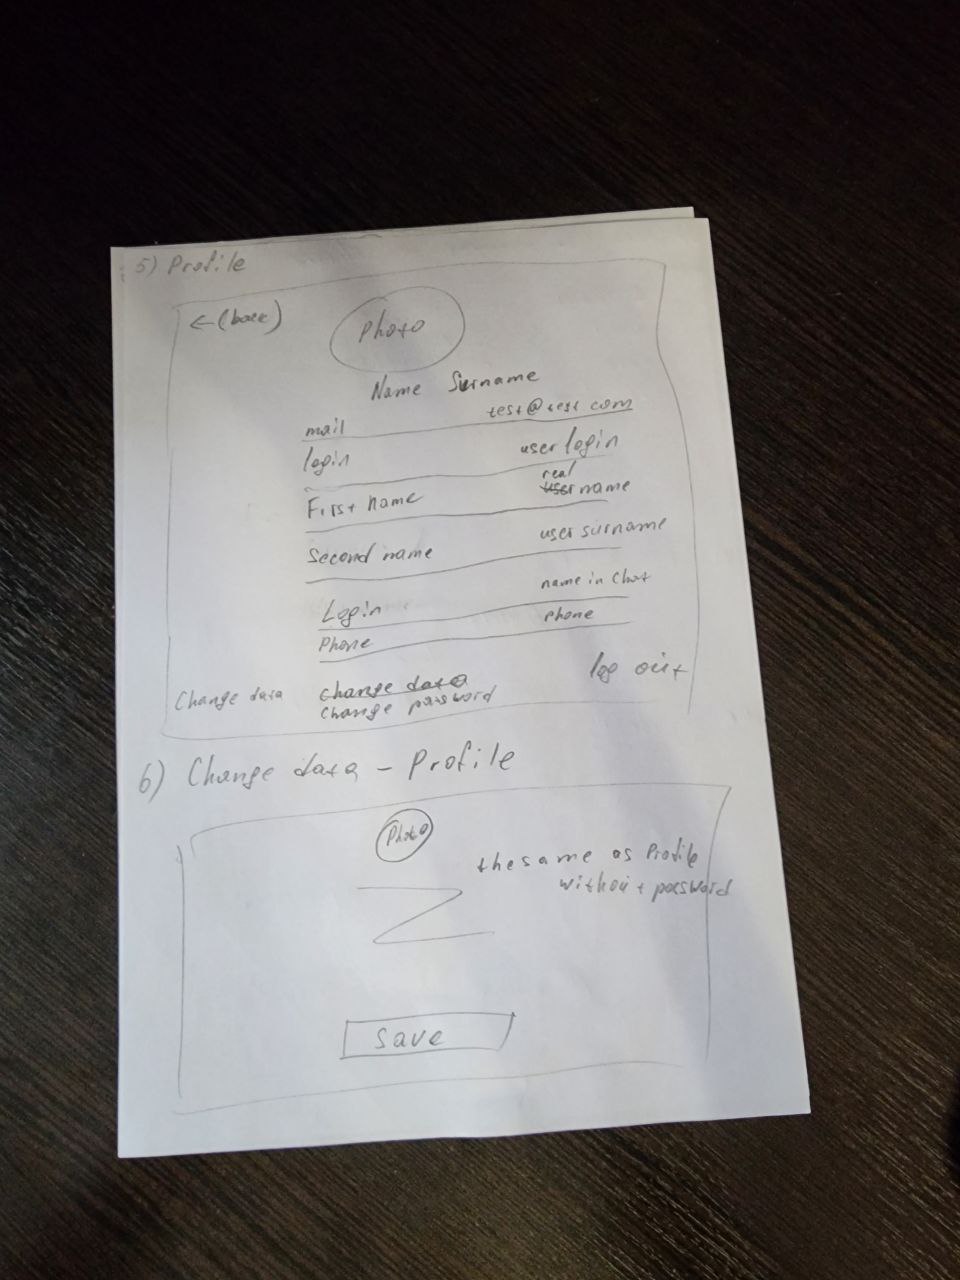 5) Profile
← (back)
Photo
Name Surname
mail test@test com
login user login
First name real name
Second name user surname
Login name in Chat
Phone phone
log out
Change data change data
Change password
6) Change data - Profile
Photo
the same as Profile
without password
save